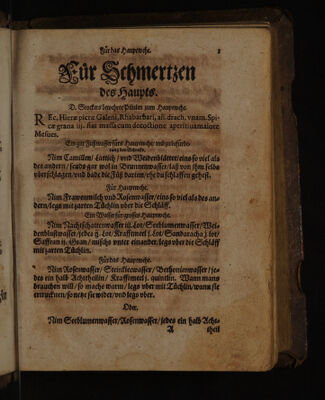 Für das Hauptwehe. 1
Für Schmertzen
des Haupts.
D. Stockers bewehrte Pillulen zum Hauptwehe.
REc. Hieræ picræ Galeni, Rhabarbari, añ. drach. vnam. Spi-
cæ grana iij. fiat massa cum decoctione aperitiua maiore
Mesues.
Ein gut Fußwasser fürs Hauptwehe/
Nim Camillen/ Lattich/ vnd Weidenbletter/ eins so viel als
des andern/ seuds gar wol in Brunnenwasser/ laß von jhm selbs
vberschlagen/ vnd bade die Füß darinn/ ehe du schlaffen gehest.
Für Hauptwehe.
Nim Frawenmilch vnd Rosenwasser/ eins so viel als des an-
dern/ legs mit zarten Tüchlin vber die Schläff.
Ein Wasser für grosses Hauptwehe.
Nim Nachtschattenwasser iij. Lot/ Seeblumenwasser/ Wei-
denblustwasser/ jedes ij. Lot/ Krafftmeel j. Lot/ Sandaracha j. Lot/
Saffran ij. Gran/ mischs vnter einander/ legs vber die Schläff
mit zarten Tüchlin.
Für das Hauptwehe.
Nim Rosenwasser/ Steinkleewasser/ Bethonienwasser/ je-
des ein halb Achtheilin/ Krafftmeel j. quintlin. Wann mans
brauchen will/ so machs warm/ legs vber mit Tüchlin/ wann sie
ertrucknen/ so netz sie wider/ vnd legs vber.
Oder.
Nim Seeblumenwasser/ Rosenwasser/ jedes ein halb Ach-
A theil